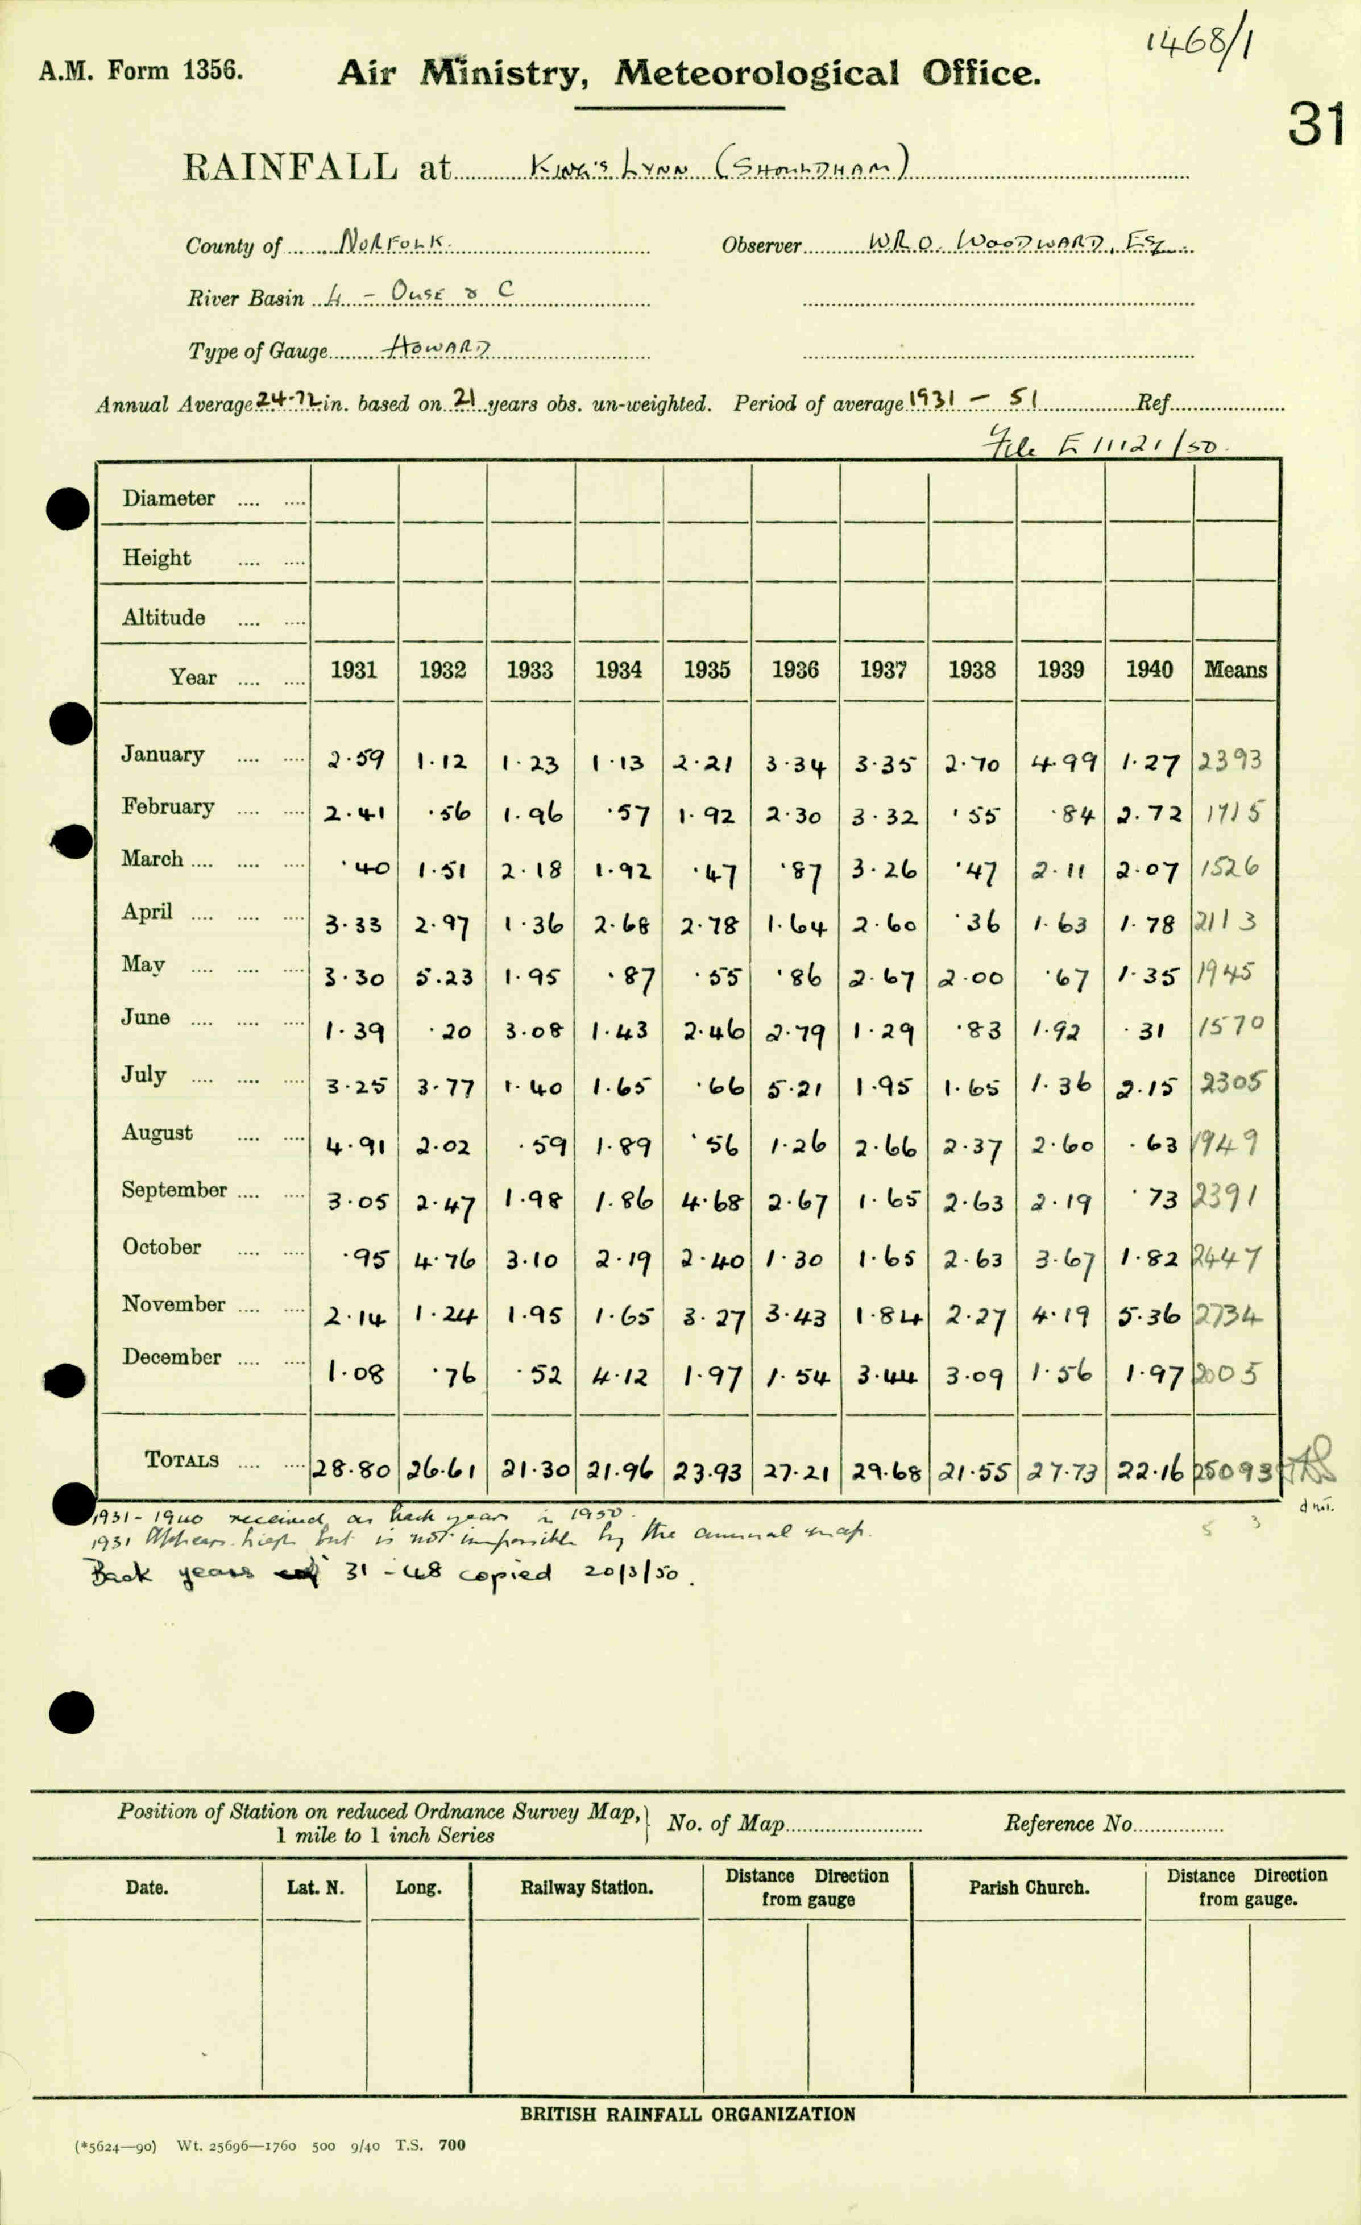 1468/1
A.M. Form 1356. Air Ministry, Meteorological Office.
31
RAINFALL at KING'S LYNN (SHOULDHAM)
County of NORFOLK. Observer W.R.O. WOODWARD, ESQ.
River Basin 4 - OUSE & C
Type of Gauge HOWARD
Annual Average 24.72 in. based on 21 years obs. un-weighted. Period of average 1931 - 51 Ref.
File E 11121/50.
Diameter
Height
Altitude
Year 1931 1932 1933 1934 1935 1936 1937 1938 1939 1940 Means
January 2.59 1.12 1.23 1.13 2.21 3.34 3.35 2.70 4.99 1.27 2393
February 2.41 .56 1.96 .57 1.92 2.30 3.32 .55 .84 2.72 1715
March .40 1.51 2.18 1.92 .47 .87 3.26 .47 2.11 2.07 1526
April 3.33 2.97 1.36 2.68 2.78 1.64 2.60 .36 1.63 1.78 2113
May 3.30 5.23 1.95 .87 .55 .86 2.67 2.00 .67 1.35 1945
June 1.39 .20 3.08 1.43 2.46 2.79 1.29 .83 1.92 .31 1570
July 3.25 3.77 1.40 1.65 .66 5.21 1.95 1.65 1.36 2.15 2305
August 4.91 2.02 .59 1.89 .56 1.26 2.66 2.37 2.60 .63 1949
September 3.05 2.47 1.98 1.86 4.68 2.67 1.65 2.63 2.19 .73 2391
October .95 4.76 3.10 2.19 2.40 1.30 1.65 2.63 3.67 1.82 2447
November 2.14 1.24 1.95 1.65 3.27 3.43 1.84 2.27 4.19 5.36 2734
December 1.08 .76 .52 4.12 1.97 1.54 3.44 3.09 1.56 1.97 2005
TOTALS 28.80 26.61 21.30 21.96 23.93 27.21 29.68 21.55 27.73 22.16 25093
5 3
1931-1940 received as back years in 1950.
1931 Appears high but is not impossible by the annual map.
Back years 31-48 copied 20/3/50.
Position of Station on reduced Ordnance Survey Map, 1 mile to 1 inch Series No. of Map Reference No.
Date. Lat. N. Long. Railway Station. Distance Direction from gauge Parish Church. Distance Direction from gauge.
BRITISH RAINFALL ORGANIZATION
(*5624—90) Wt. 25696—1760 500 9/40 T.S. 700